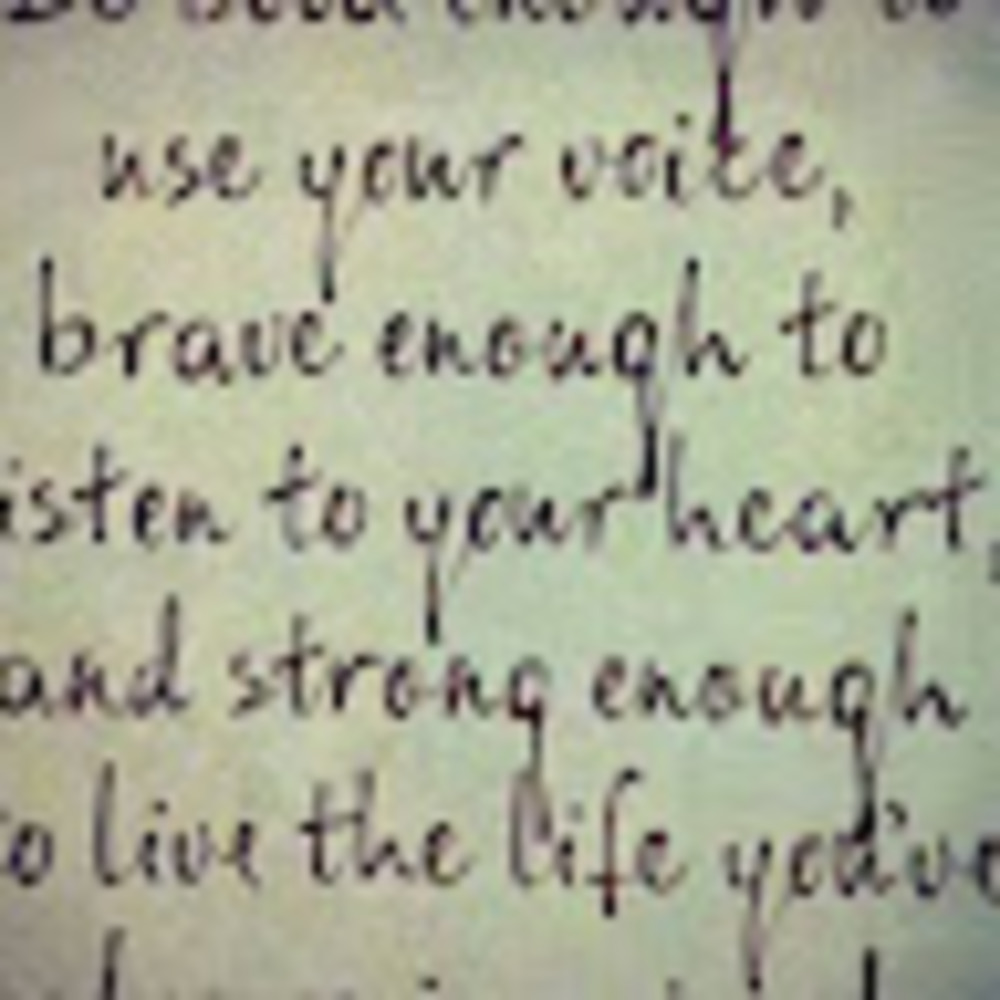 Be bold enough to
use your voice,
brave enough to
isten to your heart,
and strong enough
to live the life you've